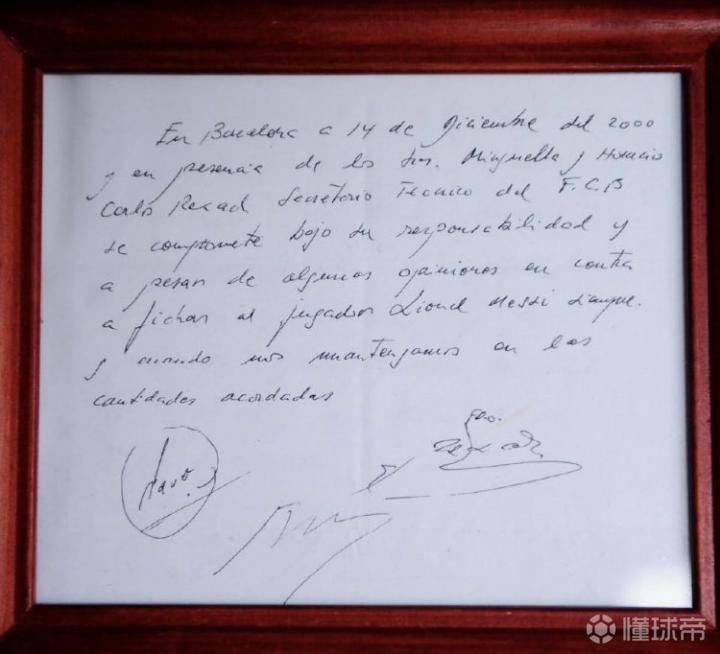 En Barcelona a 14 de Diciembre del 2000
y en presencia de los Srs. Minguella y Horacio
Carlos Rexach Secretario Tecnico del F.C.B
se compromete bajo su responsabilidad y
a pesar de algunas opiniones en contra
a fichar al jugador Lionel Messi siempre
y cuando nos mantengamos en las
cantidades acordadas
懂球帝